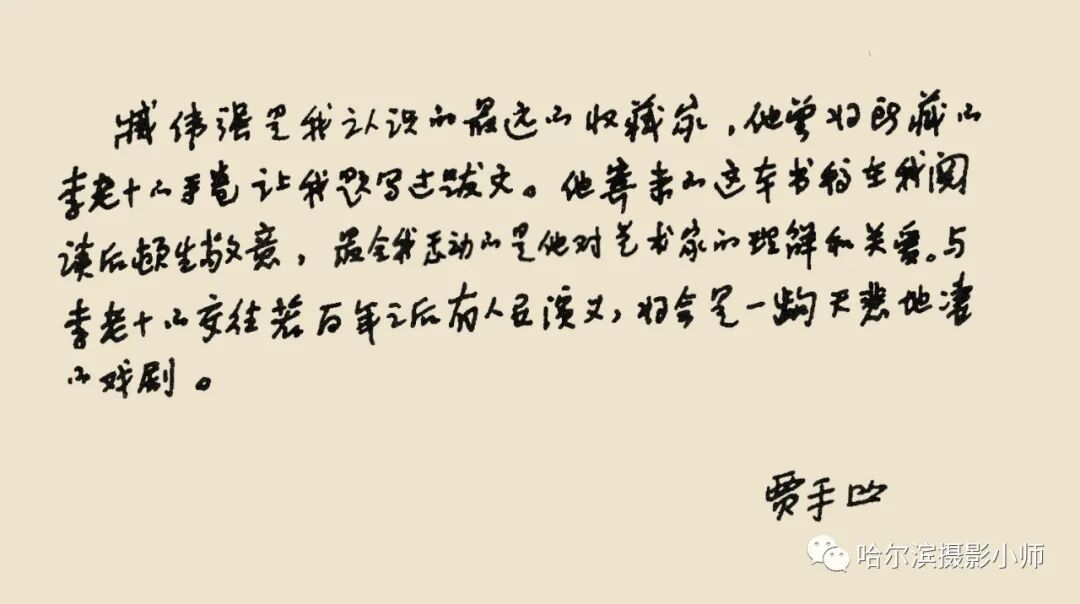 臧伟强是我认识的最远的收藏家，他曾将所藏的
李老十的手卷让我题写过跋文。他寄来的这本书稿在我阅
读后顿生敬意，最令我感动的是他对艺术家的理解和关爱。与
李老十的交往若百年之后有人在演义，将会是一出天悲地凄
的戏剧。
贾平凹
哈尔滨摄影小师